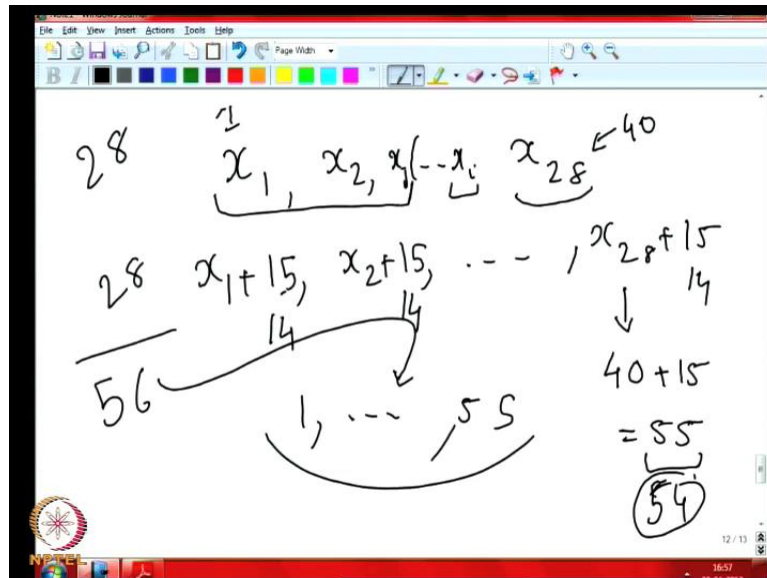 File Edit View Insert Actions Tools Help
Page Width
B I
1
28 x₁, x₂, xⱼ(---xᵢ x₂₈ ← 40
28 x₁+15, x₂+15, ---, x₂₈+15
14 14 14
56 ↓
40+15
1, ---, 55 = 55
54
12 / 13
NPTEL
16:57